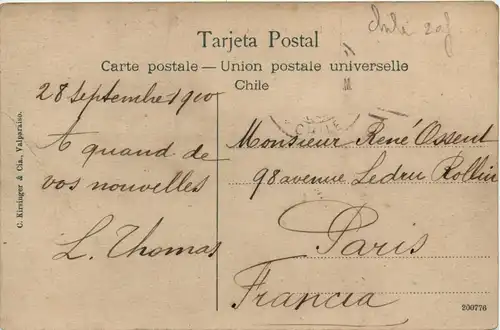 Chile
Tarjeta Postal
Carte postale — Union postale universelle
Chile
C. Kirsinger & Cia., Valparaiso.
28 Septembre 1900
A quand de
vos nouvelles
L. Thomas
CHILE
Monsieur René Ossent
98 avenue Ledru Rollin
Paris
Francia
200776